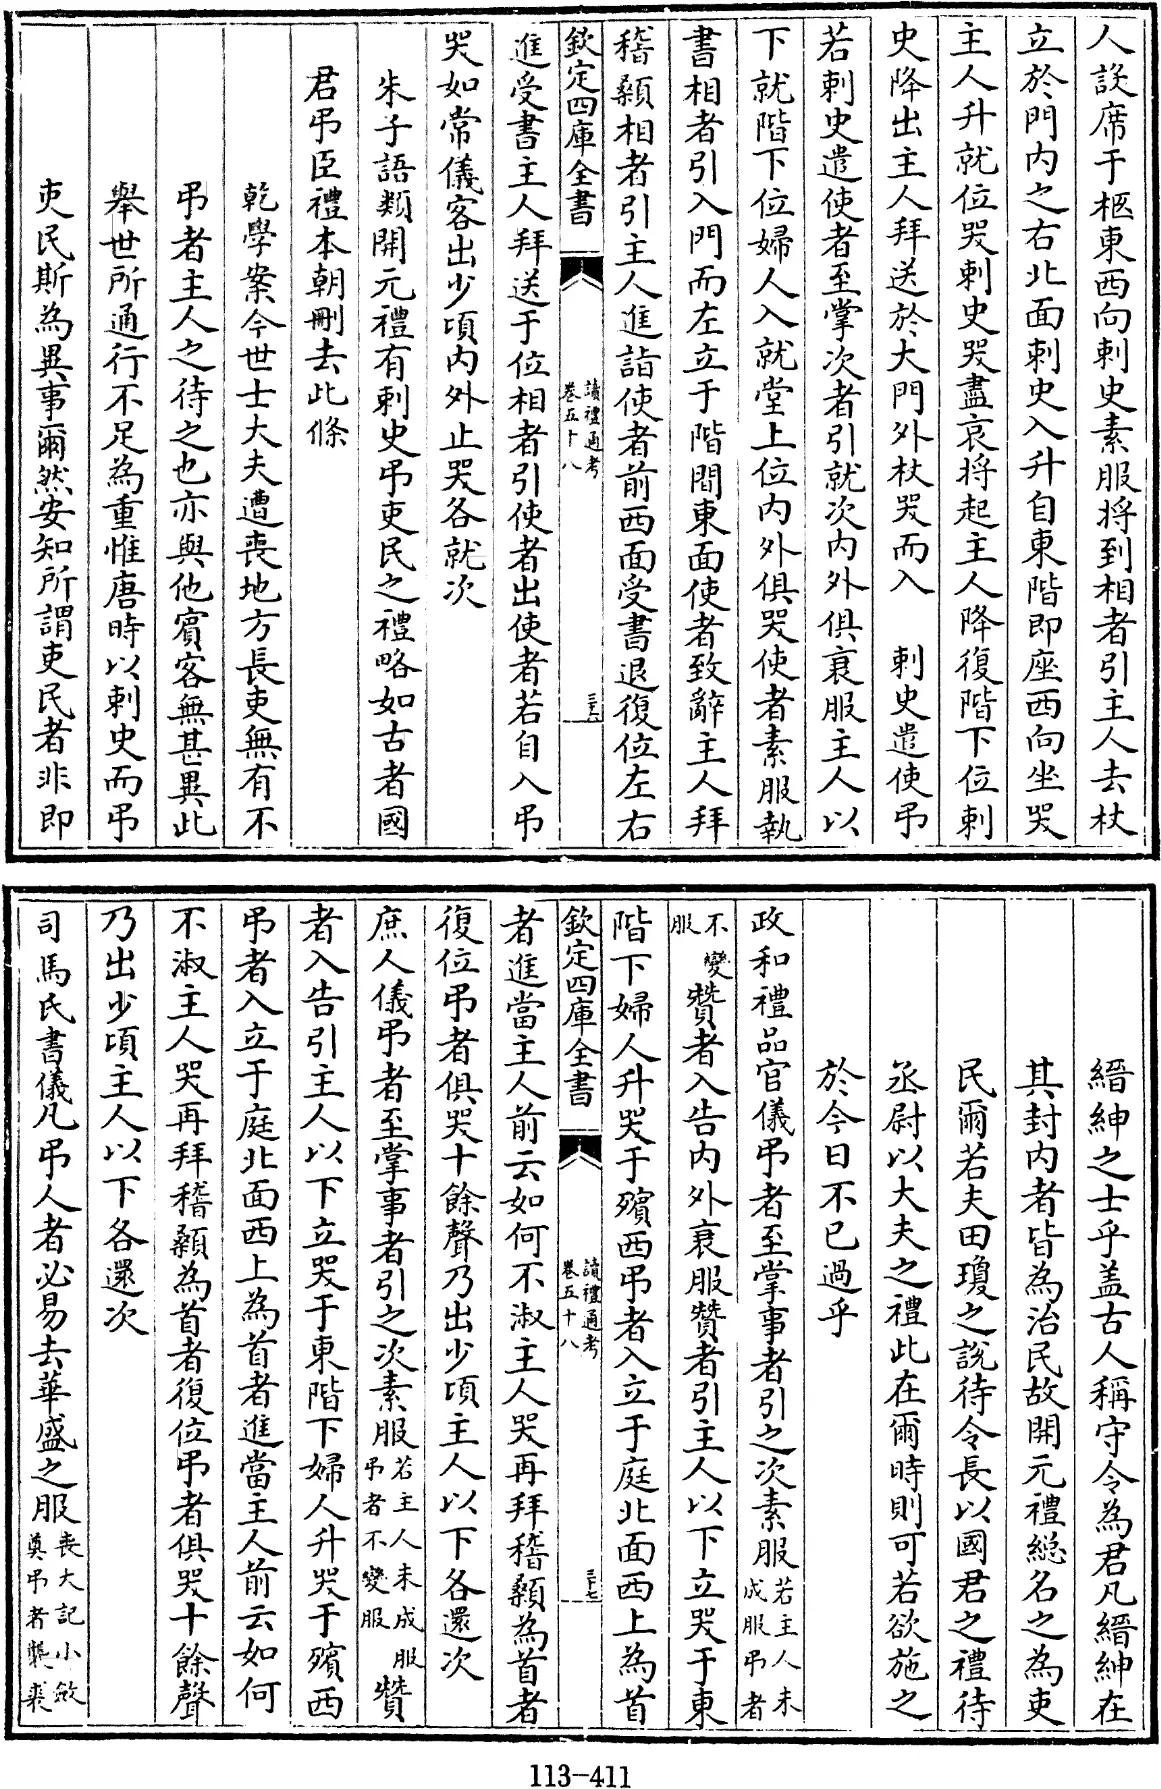 人設席于柩東西向刺史素服將到相者引主人去杖
立於門内之右北面刺史入升自東階即座西向坐哭
主人升就位哭刺史哭盡哀將起主人降復階下位刺
史降出主人拜送於大門外杖哭而入　刺史遣使弔
若刺史遣使者至掌次者引就次内外俱衰服主人以
下就階下位婦人入就堂上位内外俱哭使者素服執
書相者引入門而左立于階間東面使者致辭主人拜
稽顙相者引主人進詣使者前西面受書退復位左右
欽定四庫全書
讀禮通考
卷五十八
三十六
進受書主人拜送于位相者引使者出使者若自入弔
哭如常儀客出少頃内外止哭各就次
朱子語類開元禮有刺史弔吏民之禮略如古者國
君弔臣禮本朝刪去此條
乾學案今世士大夫遭喪地方長吏無有不
弔者主人之待之也亦與他賓客無甚異此
舉世所通行不足為重惟唐時以刺史而弔
吏民斯為異事爾然安知所謂吏民者非即
縉紳之士乎盖古人稱守令為君凡縉紳在
其封内者皆為治民故開元禮總名之為吏
民爾若夫田瓊之說待令長以國君之禮待
丞尉以大夫之禮此在爾時則可若欲施之
於今日不已過乎
政和禮品官儀弔者至掌事者引之次素服若主人未成服弔者
不變服贊者入告内外衰服贊者引主人以下立哭于東
階下婦人升哭于殯西弔者入立于庭北面西上為首
欽定四庫全書
讀禮通考
卷五十八
三十七
者進當主人前云如何不淑主人哭再拜稽顙為首者
復位弔者俱哭十餘聲乃出少頃主人以下各還次
庶人儀弔者至掌事者引之次素服若主人未成服弔者不變服贊
者入告引主人以下立哭于東階下婦人升哭于殯西
弔者入立于庭北面西上為首者進當主人前云如何
不淑主人哭再拜稽顙為首者復位弔者俱哭十餘聲
乃出少頃主人以下各還次
司馬氏書儀凡弔人者必易去華盛之服喪大記小斂奠弔者襲裘
113-411